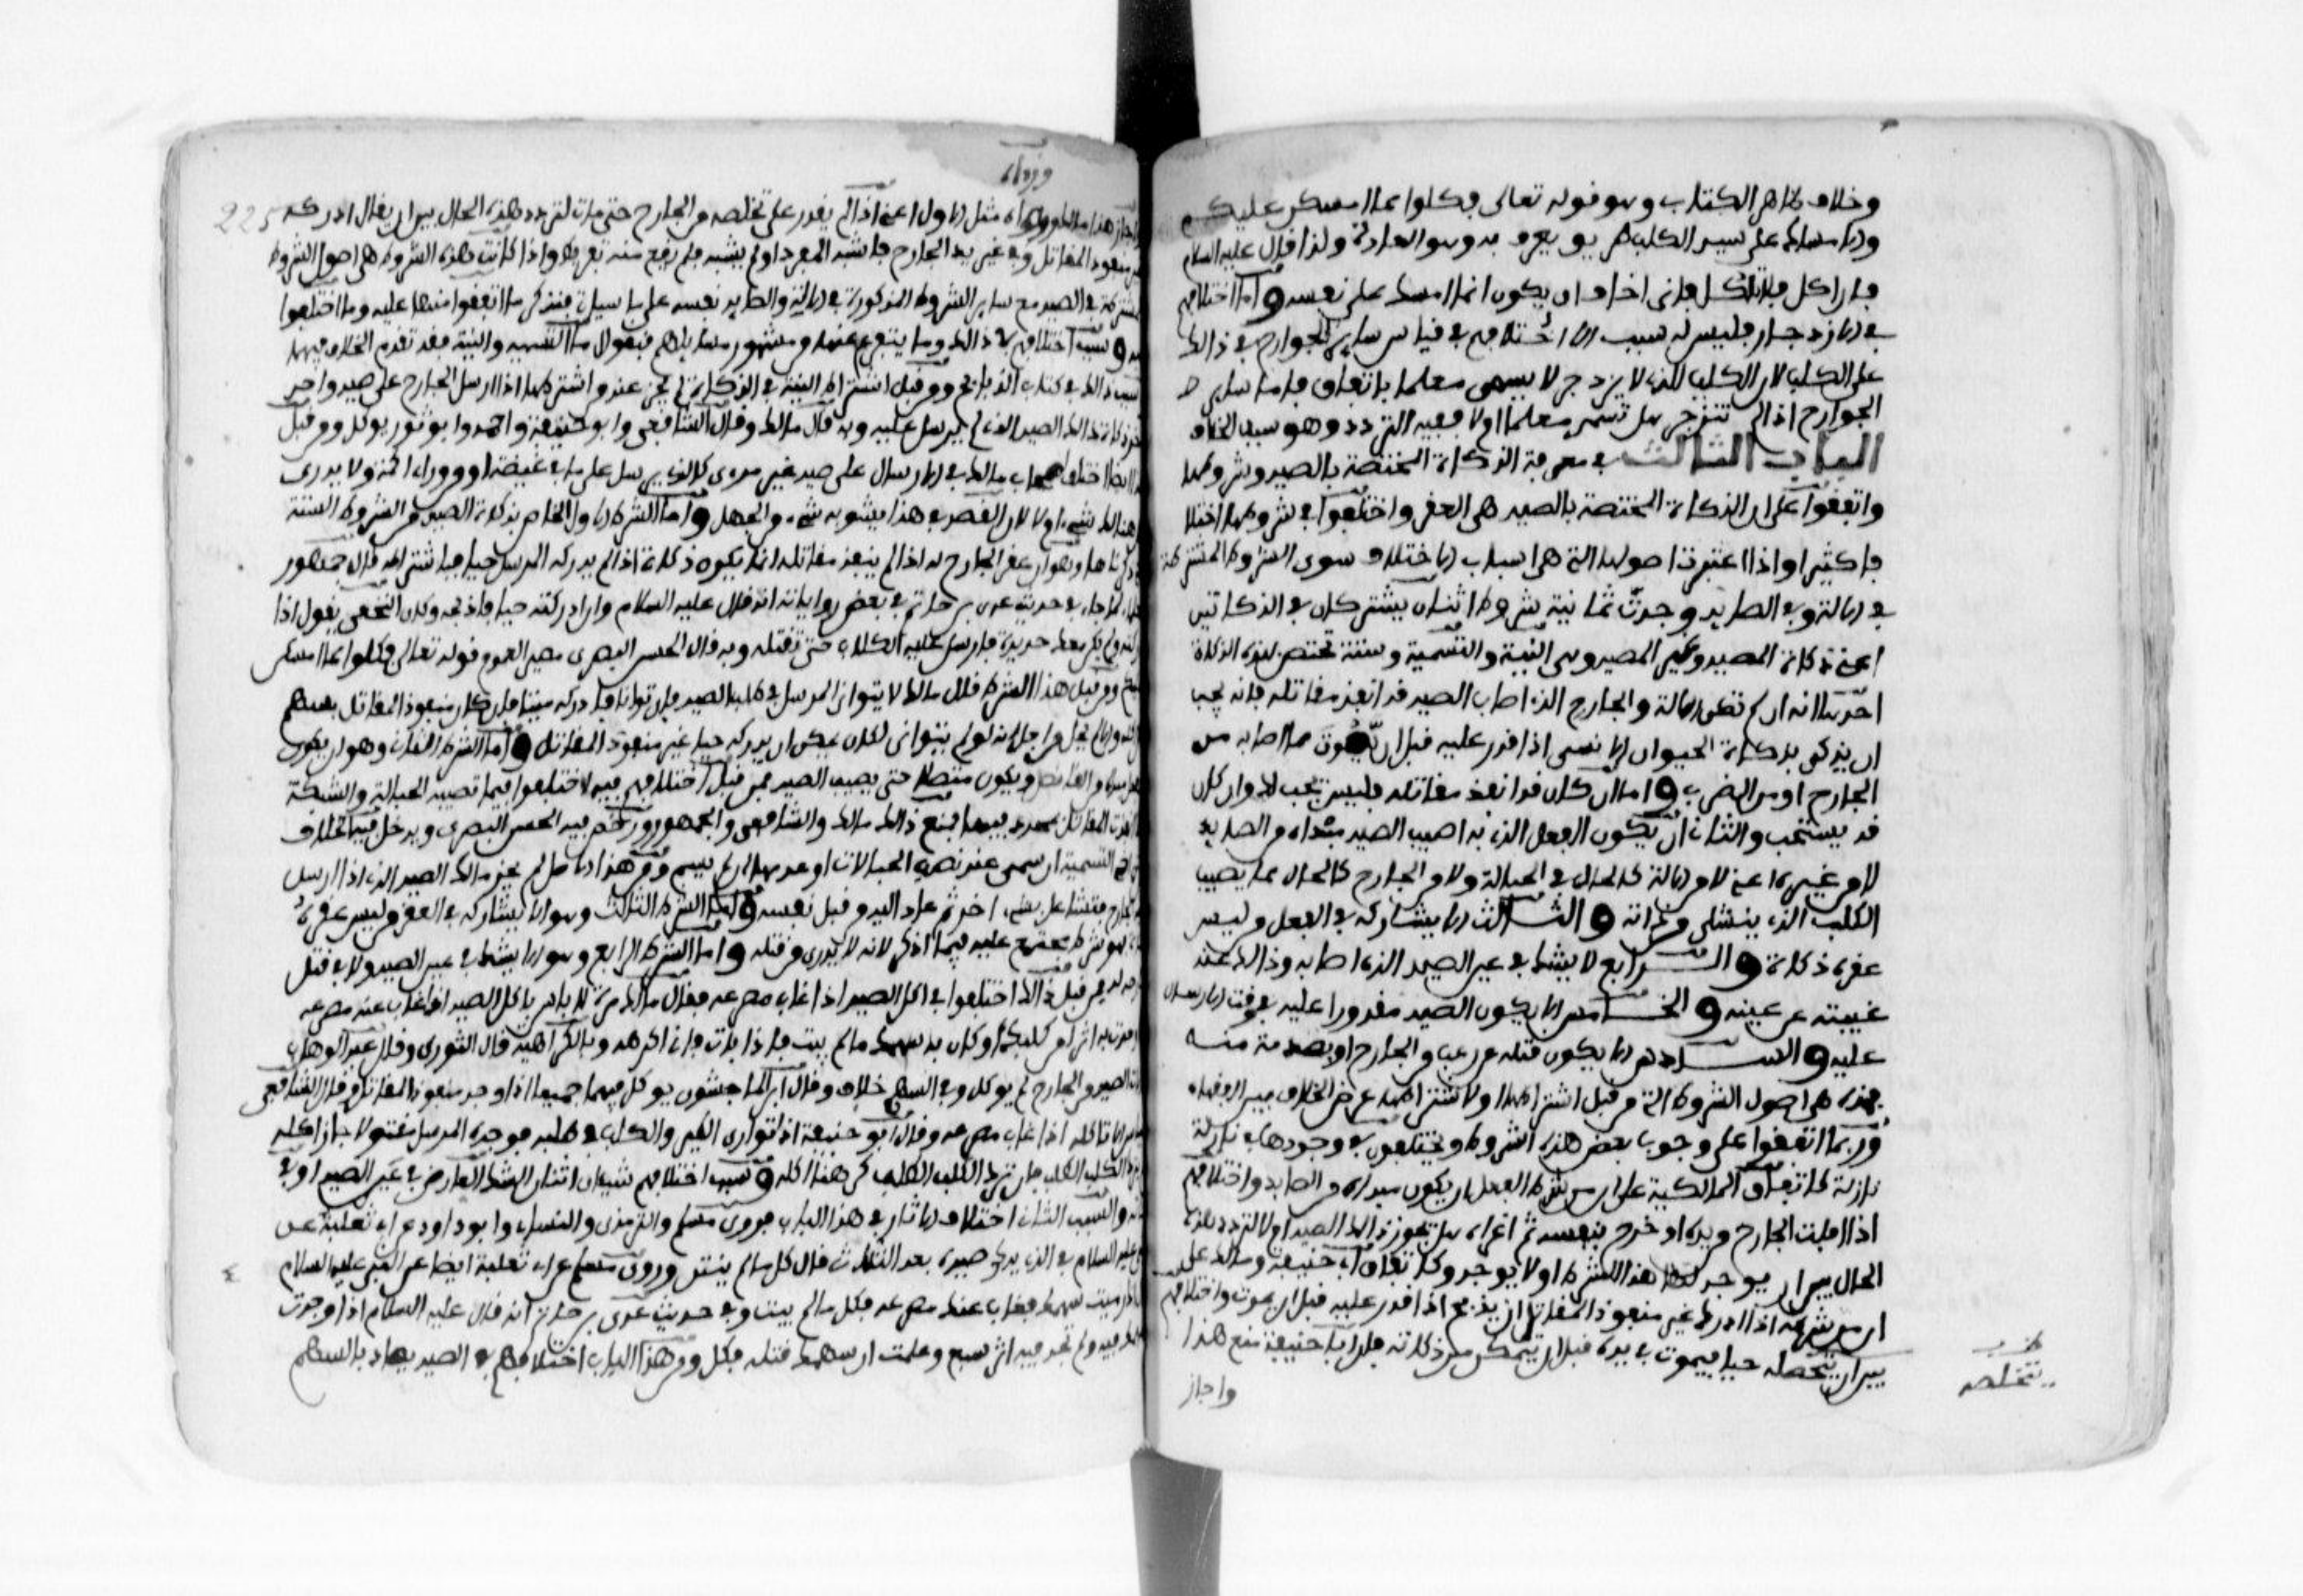 وخلاف ظاهر الكتاب وهو قوله تعالى فكلوا مما امسكن عليكم
والامساك على سيد الكلب هو يعرف به وهو العادة ولذا قال عليه السلام
فان اكل فلا تاكل فاني اخاف ان يكون انما امسك على نفسه واما اختلافهم
في الازدجار فليس له سبب الا اختلافهم في قياس ساير الجوارح في ذالك
على الكلب لان الكلب الذي لا يزدجر لا يسمى معلما باتفاق فاما ساير
الجوارح اذا لم تنزجر هل تسمى معلما اولا ففيه التردد وهو سبب الخلاف
الباب الثالث في معرفة الذكاة المختصة بالصيد وشروطها
واتفقوا على ان الذكاة المختصة بالصيد هي العقر واختلفوا في شروطها اختلا
فا كثيرا واذا اعتبرت اصولها التي هي اسباب الاختلاف سوى الشروط المشترطة
في الالة وفي الصايد وجدت ثمانية شروط اثنان يشتركان في الذكاتين
اعني ذكاة المصيد وغير المصيد وهي النية والتسمية وستة تختص بهذه الذكاة
احدها انه ان لم تكن الالة والجارح الذي اصاب الصيد قد انفذ مقاتله فانه يجب
ان يذكى بذكاة الحيوان الانسى اذا قدر عليه قبل ان يموت مما اصابه من
الجارح او من الضرب واما ان كان قد انفذ مقاتله فليس يجب ذلك وان كان
قد يستحب والثاني ان يكون الفعل الذي به اصيب الصيد مبداه من الصايد
لا من غيره اعني لا من الالة كالحال في الحبالة ولا من الجارح كالحال مما يصيب
الكلب الذي ينشلى من ذاته والثالث الا يشاركه في الفعل من ليس
عقره ذكاة والرابع لا يشك في عين الصيد الذي اصابه وذالك عند
غيبته عن عينه والخامس الا يكون الصيد مقدورا عليه في وقت الارسال
عليه والسادس الا يكون قتله من رعب من الجارح او بصدمة منه
فهذه هي اصول الشروط التي من قبل اشتراطها او لا اشتراطها عرض الخلاف بين الفقهاء
وربما اتفقوا على وجوب بعض هذه الشروط ويختلفون في وجودها في نازلة
نازلة كاتفاق المالكية على ان من شرط الفعل ان يكون مبداه من الصايد واختلافهم
اذا افلت الجارح من يده او خرج بنفسه ثم اغراه هل تجوز ذالك الصيد اولا لتردد هذه
الحال بين ان يوجد لها هذا الشرط اولا يوجد وكاتفاق ابي حنيفة ومالك على
ان من شرطه اذا ادرك غير منفوذ المقاتل ان يذبح اذا قدر عليه قبل ان يموت واختلافهم
بين ان يتحصله حيا فيموت في يده قبل ان يتمكن من ذكاته فان ابا حنيفة منع هذا
يتخلصه
واجاز
225
وراه
اجاز هذا مالك وراه مثل الاول اعني اذا لم يقدر على تخلصه من الجارح حتى مات لتردد هذه الحال بين ان يقال ادركه
غير منفوذ المقاتل وفي غير يد الجارح فاشبه المفرد او لم يشبه فلم يقع منه تفريط واذا كانت هذه الشروط هي اصول الشروط
المشترطة في الصيد مع ساير الشروط المذكورة في الالة والصايد نفسه على ما سياتي فنذكر ما اتفقوا منها عليه وما اختلفوا
فيه وسبب اختلافهم في ذالك وما يتفرع عنها من مشهور مسايلهم فنقول اما التسمية والنية فقد تقدم الخلاف فيهما
وسبب ذالك في كتاب الذبايح ومن قبل اشتراط النية في الذكاة لم يجز عند من اشترطها اذا ارسل الجارح على صيد واحد
فاخذ ذالك الصيد الذي لم يرسل عليه وبه قال مالك وقال الشافعي وابو حنيفة واحمد وابو ثور يوكل ومن قبل
هذا ايضا اختلف اصحاب مالك في الارسال على صيد غير مرءى كالذي يرسل على ما في غيضة او من وراء اكمة ولا يدرى
هل هنالك شيء ام لا لان القصد في هذا يشوبه شيء من الجهل واما الشرط الاول الخاص بذكاة الصيد من الشروط الستة
التي ذكرناها وهو ان عقر الجارح له اذا لم ينفذ مقاتله انما يكون ذكاة اذا لم يدركه المرسل حيا فباشتراطه قال جمهور
العلماء لما جاء في حديث عدي بن حاتم في بعض رواياته انه قال عليه السلام وان ادركته حيا فاذبحه وكان النخعي يقول اذا
ادركته ولم يكن معك حديدة فارسل عليه الكلاب حتى تقتله وبه قال الحسن البصري مصيرا لعموم قوله تعالى فكلوا مما امسكن
عليكم ومن قبل هذا الشرط قال مالك لا يتوانى المرسل في طلب الصيد فان توانا فادركه ميتا فان كان منفوذ المقاتل بسهم
حل والا لم يحل من اجل انه لو لم يتوانى لكان يمكن ان يدركه حيا غير منفوذ المقاتل واما الشرط الثاني وهو ان يكون
الفعل مبداه من القانص ويكون متصلا حتى يصيب الصيد فمن قبل اختلافهم فيه اختلفوا فيما تصيبه الحبالة والشبكة
اذا انفذت المقاتل بمحدد فيها فمنع ذالك مالك والشافعي والجمهور ورخص فيه الحسن البصري ويدخل فيه الخلاف
في التسمية ان سمى عند نصب الحبالات او عدمها ان لم يسم ومن هذا الاصل لم يجز مالك الصيد الذي اذا ارسل
الجارح فتشاغل بشيء اخر ثم عاد اليه من قبل نفسه واما الشرط الثالث وهو الا يشاركه في العقر من ليس عقره
ذكاة فهو شرط مجتمع عليه فيما اذكر لانه لا يدرى من قتله واما الشرط الرابع وهو الا يشك في عين الصيد ولا في قتل
جارحه له فمن قبل ذالك اختلفوا في اكل الصيد اذا غاب مصرعه فقال مالك مرة لا باس باكل الصيد اذا غاب عنه مصرعه
اذا وجدت به اثرا من كلبك او كان به سهمك ما لم يبت فاذا بات فاني اكرهه وبالكراهية قال الثوري وقال عبد الوهاب
اذا بات الصيد من الجارح لم يوكل وفي السهم خلاف وقال ابن الماجشون يوكل فيهما جميعا اذا وجد منفوذ المقاتل وقال الشافعي
القياس الا تاكله اذا غاب مصرعه وقال ابو حنيفة اذا توارى الصيد والكلب في طلبه فوجده المرسل مقتولا جاز اكله
ما لم يترك الكلب الطلب فان ترك الكلب الطلب كرهنا اكله وسبب اختلافهم شيئان اثنان الشك العارض في عين الصيد او في
ذكاته والسبب الثاني اختلاف الاثار في هذا الباب فروى مسلم والترمذي والنسائي وابو داود عن ابي ثعلبة عن
النبي عليه السلام في الذي يدرك صيده بعد الثلاث قال كل ما لم ينتن وروى مسلم عن ابي ثعلبة ايضا عن النبي عليه السلام
اذا رميت سهمك فغاب عنك مصرعه فكل ما لم يبت وفي حديث عدي بن حاتم انه قال عليه السلام اذا وجدت
سهمك فيه ولم تجد فيه اثر سبع وعلمت ان سهمك قتله فكل ومن هذا الباب اختلافهم في الصيد يصاد بالسهم